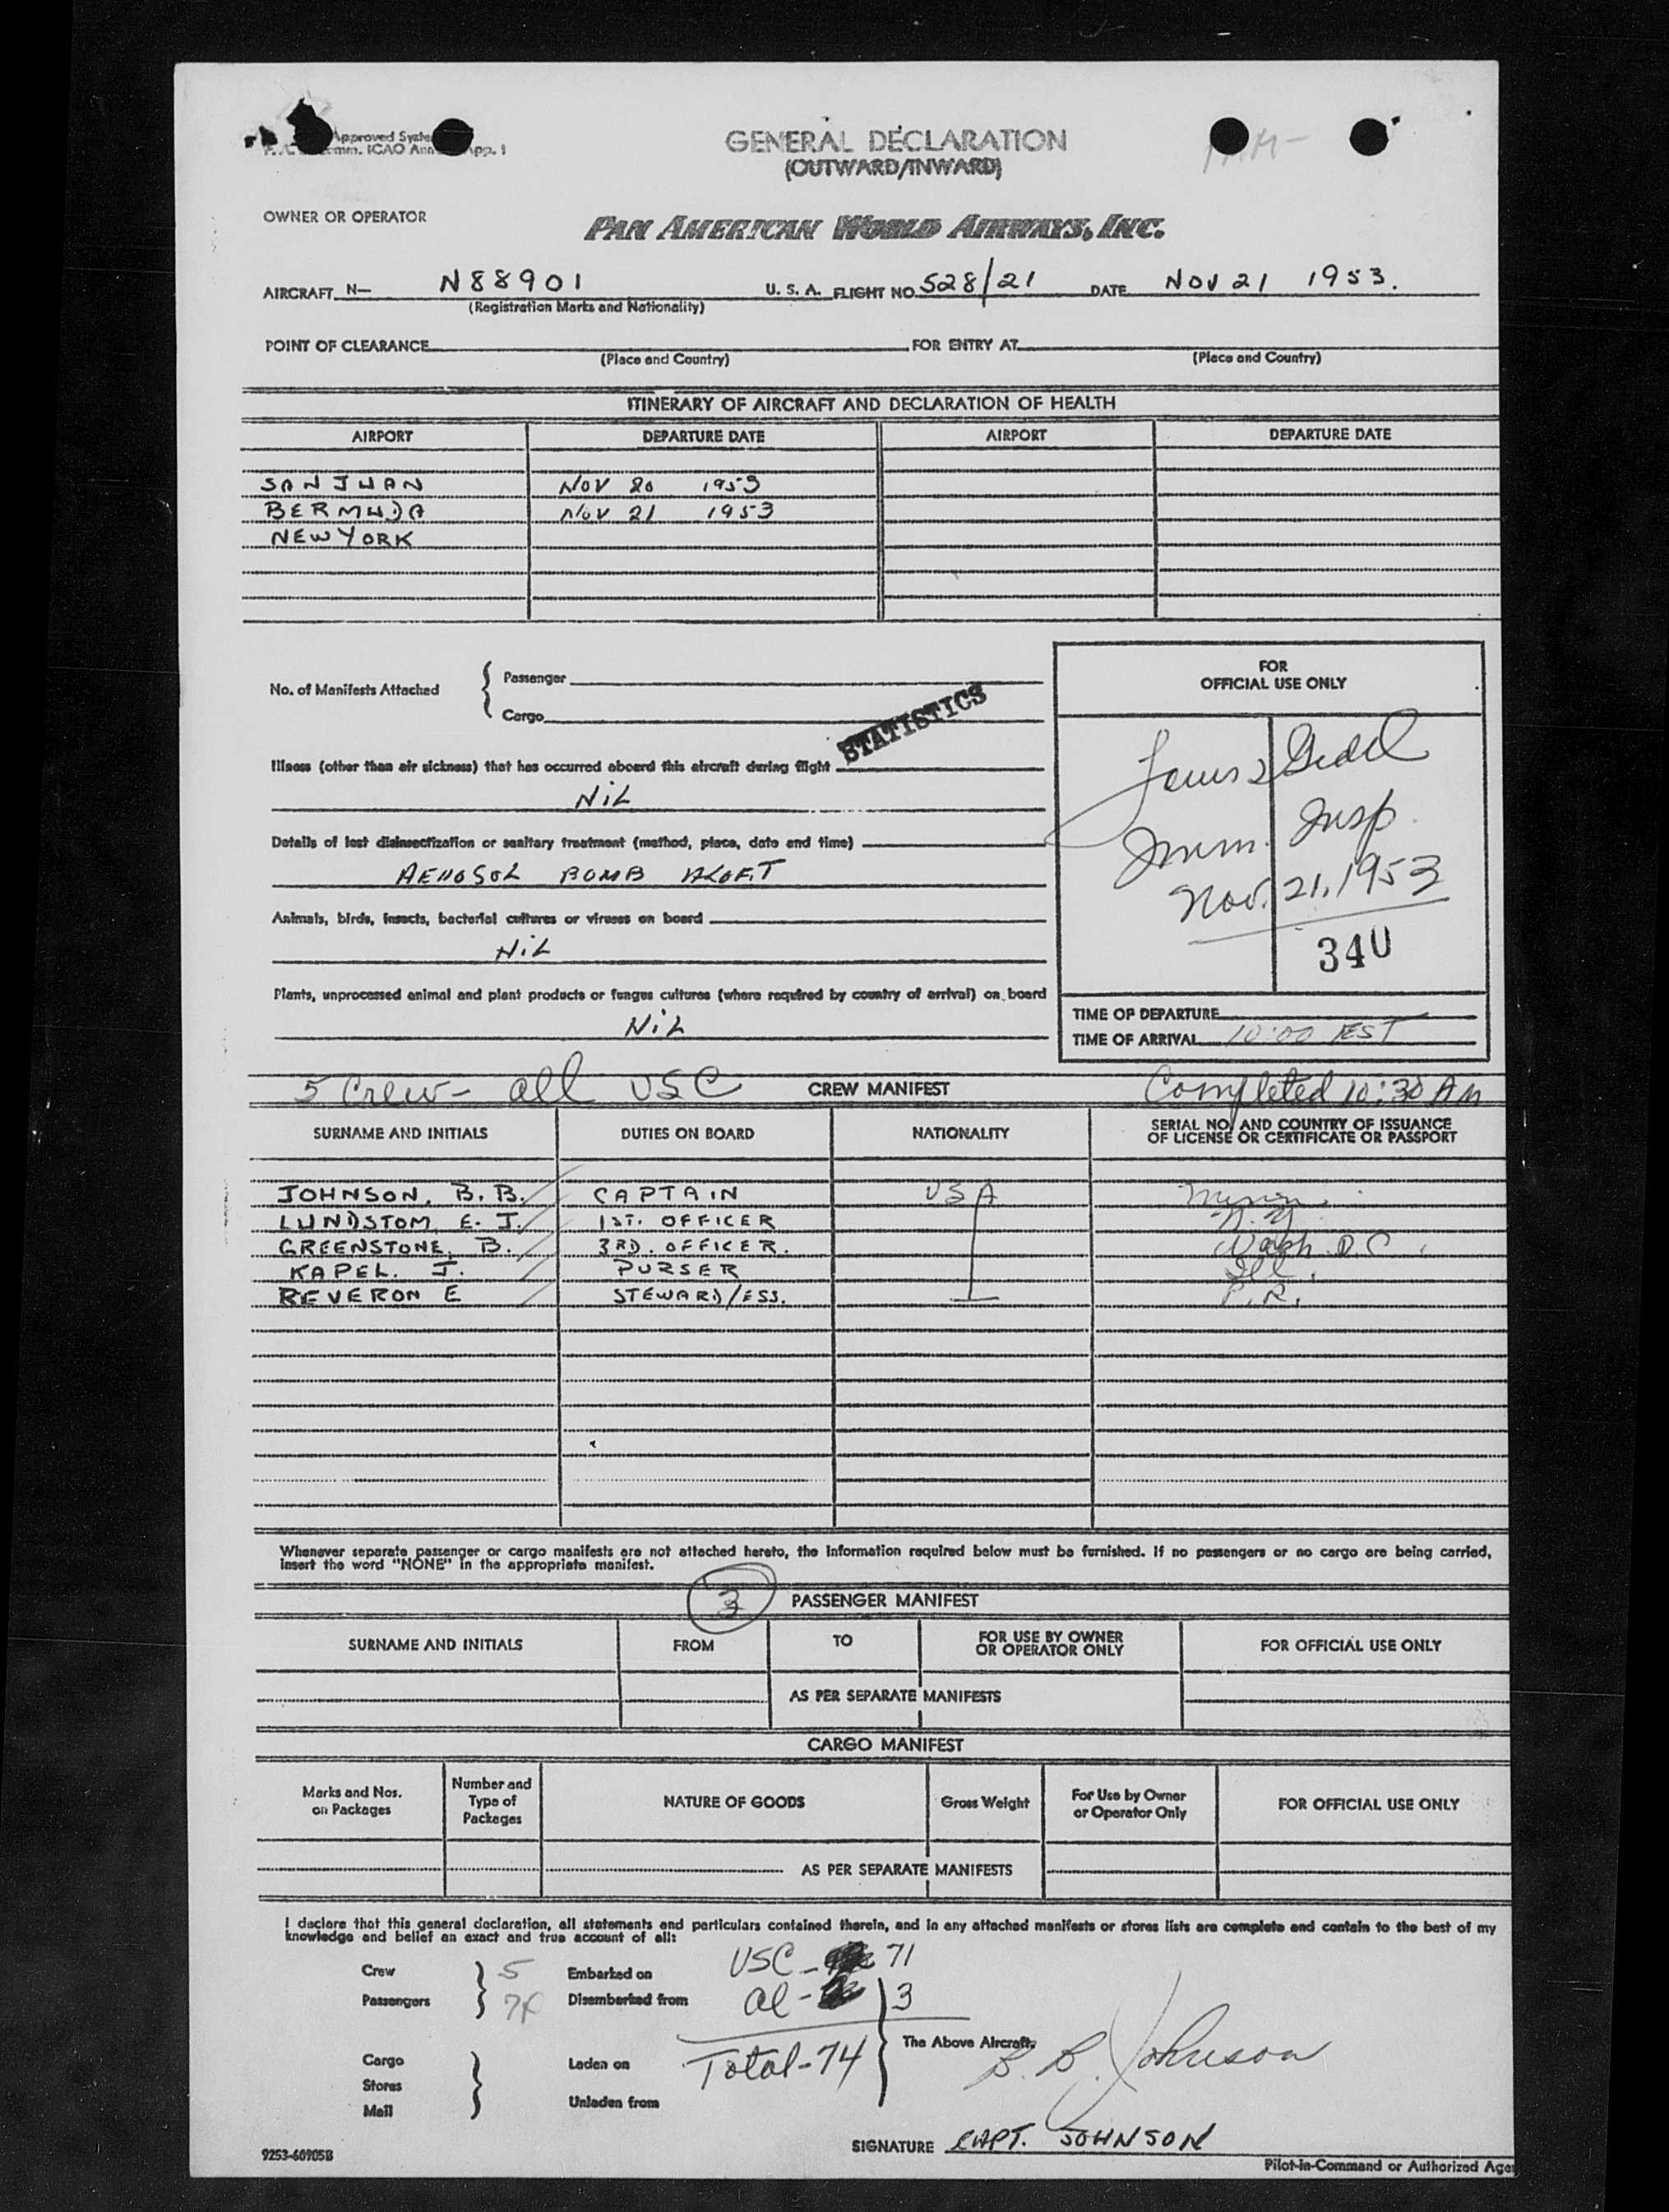 Approved
ICAO App. 1
GENERAL DECLARATION
(OUTWARD/INWARD)
OWNER OR OPERATOR
PAN AMERICAN WORLD AIRWAYS, INC.
AIRCRAFT N— N88901 U. S. A. FLIGHT NO. 528/21 DATE NOV 21 1953.
(Registration Marks and Nationality)
POINT OF CLEARANCE FOR ENTRY AT
(Place and Country) (Place and Country)
ITINERARY OF AIRCRAFT AND DECLARATION OF HEALTH
AIRPORT DEPARTURE DATE AIRPORT DEPARTURE DATE
SAN JUAN NOV 20 1953
BERMUDA NOV 21 1953
NEW YORK
No. of Manifests Attached
Passenger
Cargo
STATISTICS
Illness (other than air sickness) that has occurred aboard this aircraft during flight
NIL
Details of last disinsectization or sanitary treatment (method, place, date and time)
AEROSOL BOMB ALOFT
Animals, birds, insects, bacterial cultures or viruses on board
NIL
Plants, unprocessed animal and plant products or fungus cultures (where required by country of arrival) on board
NIL
FOR
OFFICIAL USE ONLY
Imm. Insp.
Nov. 21, 1953
340
TIME OF DEPARTURE
TIME OF ARRIVAL 10:00 EST
5 Crew - all USC CREW MANIFEST Completed 10:30 AM
SURNAME AND INITIALS DUTIES ON BOARD NATIONALITY SERIAL NO. AND COUNTRY OF ISSUANCE
OF LICENSE OR CERTIFICATE OR PASSPORT
JOHNSON, B. B. CAPTAIN USA
LUNDSTOM E. J. 1ST. OFFICER N.Y.
GREENSTONE, B. 3RD. OFFICER. Wash. D.C.
KAPEL. J. PURSER Ill.
REVERON E STEWARD/ESS. P.R.
Whenever separate passenger or cargo manifests are not attached hereto, the information required below must be furnished. If no passengers or no cargo are being carried,
insert the word "NONE" in the appropriate manifest.
3 PASSENGER MANIFEST
SURNAME AND INITIALS FROM TO FOR USE BY OWNER
OR OPERATOR ONLY FOR OFFICIAL USE ONLY
AS PER SEPARATE MANIFESTS
CARGO MANIFEST
Marks and Nos.
on Packages
Number and
Type of
Packages
NATURE OF GOODS
Gross Weight
For Use by Owner
or Operator Only
FOR OFFICIAL USE ONLY
AS PER SEPARATE MANIFESTS
I declare that this general declaration, all statements and particulars contained therein, and in any attached manifests or stores lists are complete and contain to the best of my
knowledge and belief an exact and true account of all:
Crew 5 Embarked on USC - 71
Passengers 74 Disembarked from al - 3
The Above Aircraft.
Cargo Laden on Total - 74
Stores
Mail Unladen from
B. B. Johnson
SIGNATURE CAPT. JOHNSON
9253-60905B
Pilot-in-Command or Authorized Age